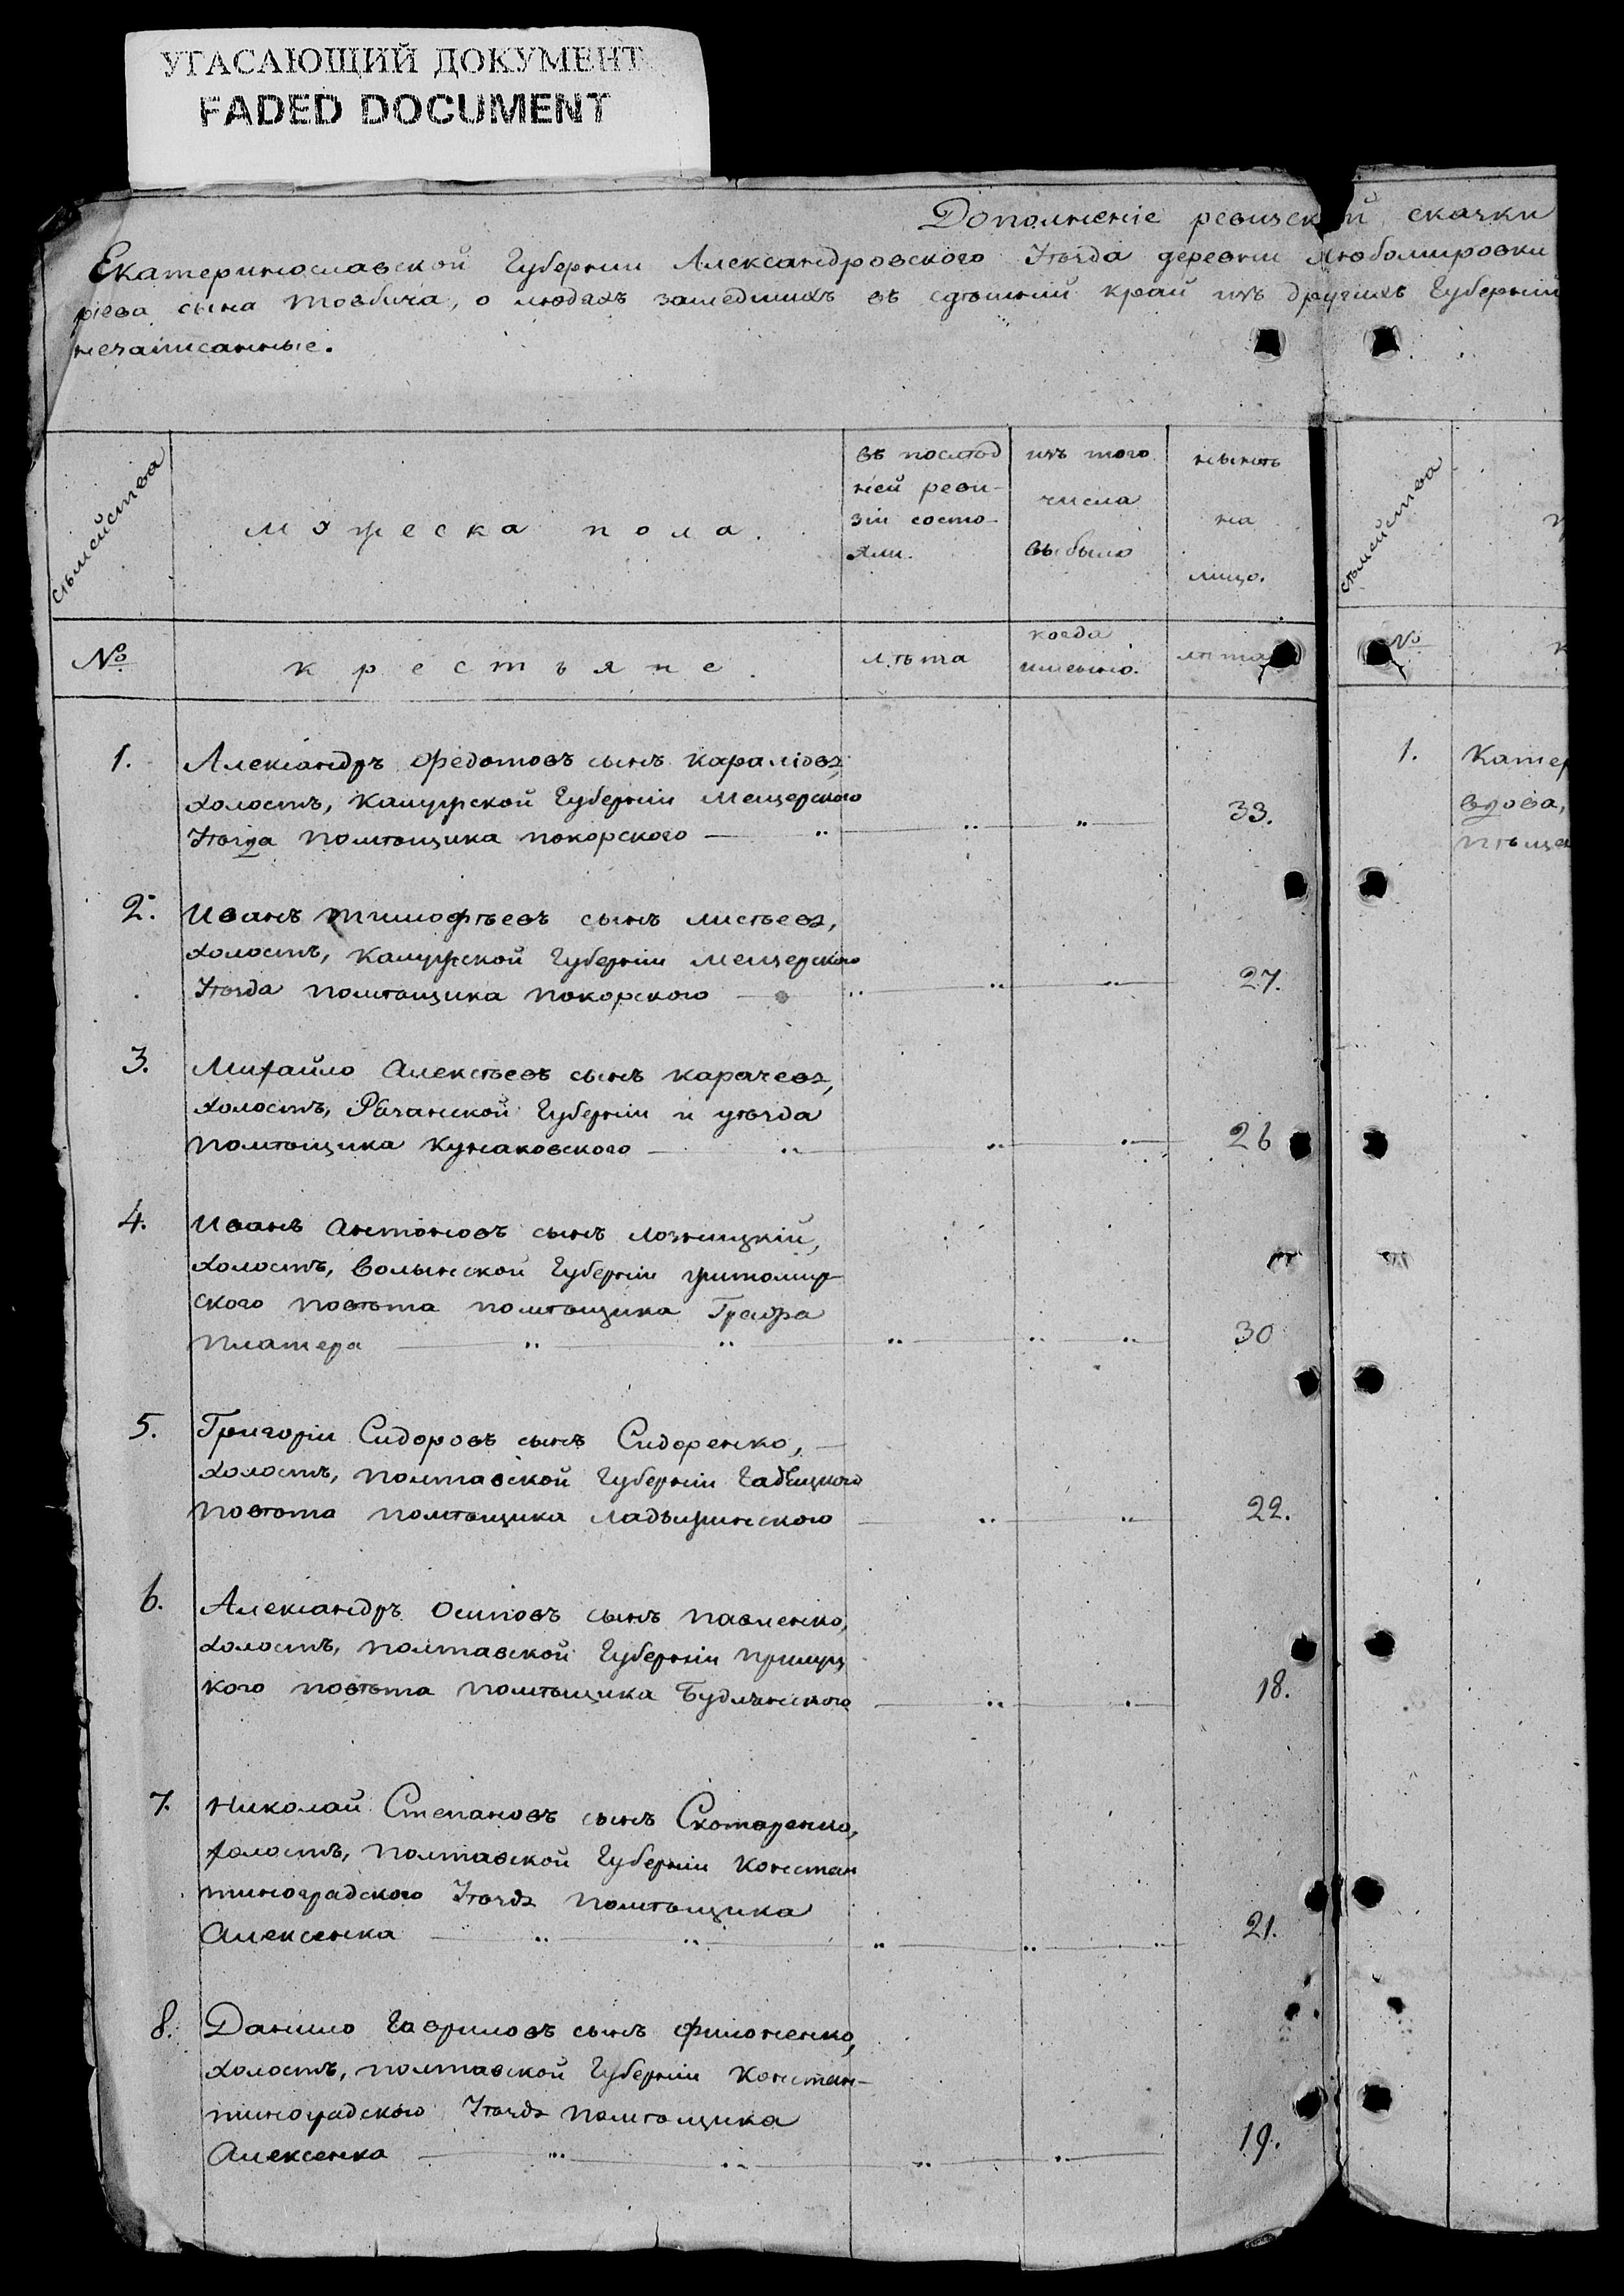 УГАСАЮЩИЙ ДОКУМЕНТ
FADED DOCUMENT
Дополненіе ревизской скаски
Екатеринославской Губерніи Александровского Уѣзда деревни Любомировки
ріева сына Товбича, о людяхъ зашедшихъ въ сдѣшний край изъ другихъ Губерній
незаписанные.
сѣмейства
мужеска пола.
въ послѣд
ней реви-
зіи состо-
яли.
изъ того
числа
выбыло
нынѣ
на
лицо.
сѣмейства
№
крестьяне.
лѣта
когда
именно.
лѣта
№
1. Александръ Федотовъ сынъ
холостъ, Калужской Губерніи Мещерского
Уѣзда помѣщика Покорского 33.
1. Катер
вдова,
2. Иванъ Тимофѣевъ сынъ Листьевъ,
холостъ, Калужской Губерніи Мещерского
Уѣзда помѣщика Покорского 27.
3. Михайло Алексѣевъ сынъ Карачевъ,
холостъ, Рязанской Губерніи и уѣзда
помѣщика Кунаковского 26
4. Иванъ Антоновъ сынъ Лозницкій,
холостъ, Волынской Губерніи Житомир-
ского повѣта помѣщика Графа
Платера 30
5. Григорій Сидоровъ сынъ Сидоренко,
холостъ, Полтавской Губерніи
повѣта помѣщика 22.
6. Александръ Осиповъ сынъ Павленко,
холостъ, Полтавской Губерніи Прилуц
кого повѣта помѣщика Будлянского 18.
7. Николай Степановъ сынъ Скотаренко,
холостъ, Полтавской Губерніи Констан
тиноградского Уѣзда помѣщика
Алексенка 21.
8. Данило Гавриловъ сынъ Филоненко,
холостъ, Полтавской Губерніи Констан-
тиноградского Уѣзда помѣщика
Алексенка 19.